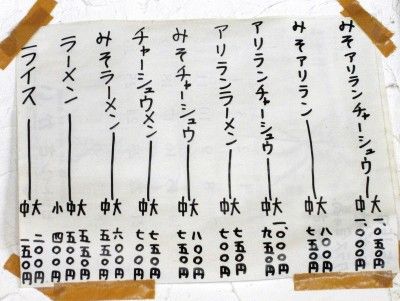 みそアリランチャーシュウ
大 一、〇五〇円
中 一、〇〇〇円
みそアリラン
大 八〇〇円
中 七五〇円
アリランチャーシュウ
大 一、〇〇〇円
中 九五〇円
アリランラーメン
大 七五〇円
中 七〇〇円
みそチャーシュウ
大 八〇〇円
中 七五〇円
チャーシュウメン
大 七五〇円
中 七〇〇円
みそラーメン
大 六〇〇円
中 五五〇円
ラーメン
大 五五〇円
中 五〇〇円
小 四〇〇円
ライス
大 二〇〇円
中 一五〇円